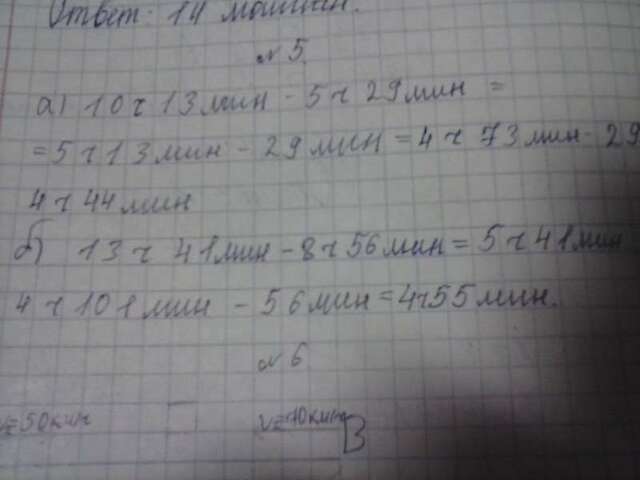 Ответ: 14 машин.
№ 5.
а) 10 ч 13 мин - 5 ч 29 мин =
= 5 ч 13 мин - 29 мин = 4 ч 73 мин - 29
4 ч 44 мин
б) 13 ч 41 мин - 8 ч 56 мин = 5 ч 41 мин
4 ч 101 мин - 56 мин = 4ч55 мин.
№ 6
v=50км/ч v=70км/ч
В